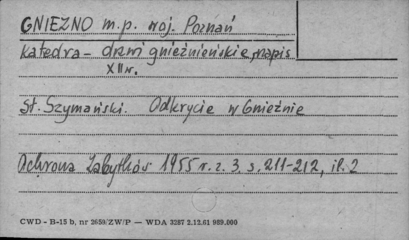 GNIEZNO m.p. woj. Poznań
Katedra - drzwi gnieźnieńskie, napis
XII w.
St. Szymański. Odkrycie w Gnieźnie
Ochrona Zabytków 1955 r. z. 3. s. 211-212, il. 2
CWD - B-15 b, nr 2659/ZW/P — WDA 3287 2.12.61 989.000